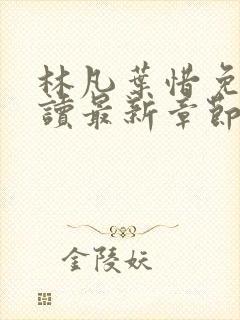 林凡葉惜免
讀最新章節
金陵妖